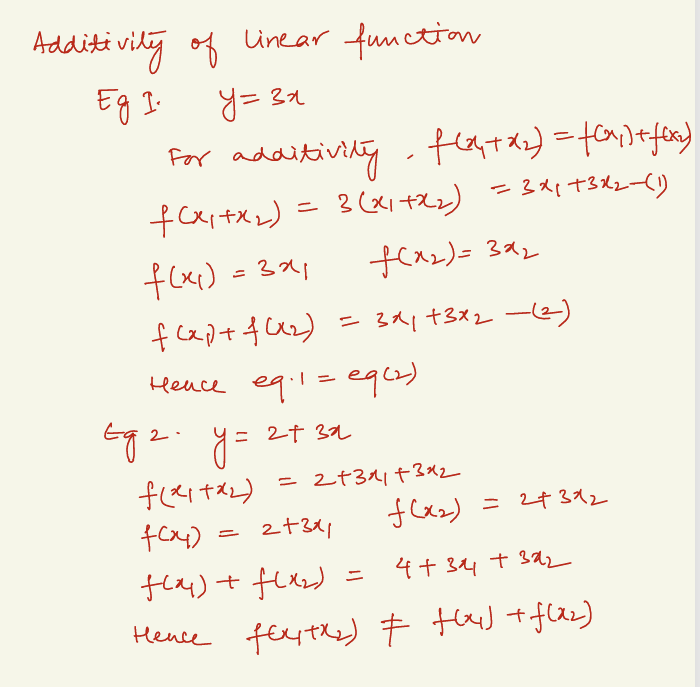 Additivity of linear function
Eg 1. y = 3x
For additivity, f(x₁+x₂) = f(x₁)+f(x₂)
f(x₁+x₂) = 3(x₁+x₂) = 3x₁+3x₂ —(1)
f(x₁) = 3x₁ f(x₂) = 3x₂
f(x₁)+f(x₂) = 3x₁+3x₂ —(2)
Hence eq.1 = eq(2)
Eg 2. y = 2+3x
f(x₁+x₂) = 2+3x₁+3x₂
f(x₁) = 2+3x₁ f(x₂) = 2+3x₂
f(x₁) + f(x₂) = 4+3x₁+3x₂
Hence f(x₁+x₂) ≠ f(x₁)+f(x₂)